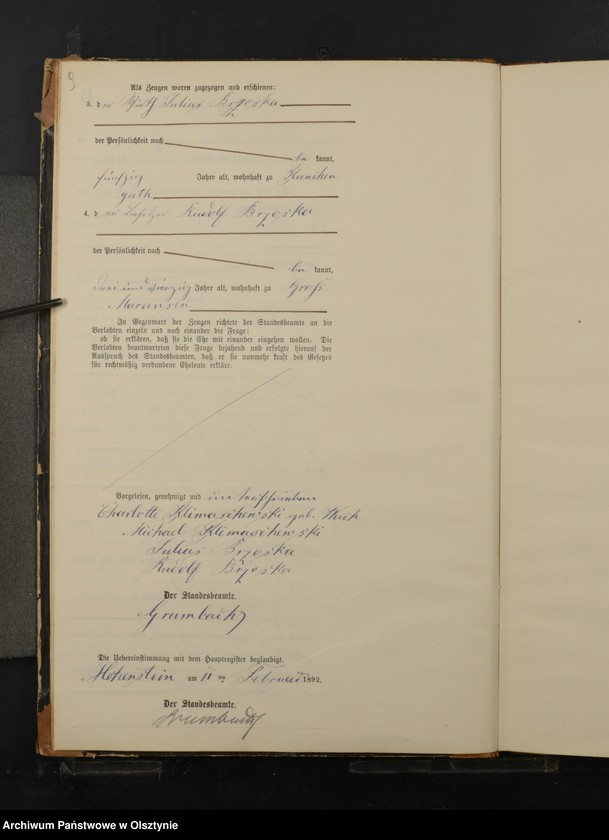 9
Als Zeugen waren zugezogen und erschienen:
3. der Wirth Julius Brzoska
der Persönlichkeit nach
be kannt,
fünfzig Jahre alt, wohnhaft zu
guth
4. der Besitzer Rudolf Brzoska
der Persönlichkeit nach
be kannt,
drei und vierzig Jahre alt, wohnhaft zu Groß
Maransen
In Gegenwart der Zeugen richtete der Standesbeamte an die
Verlobten einzeln und nach einander die Frage:
ob sie erklären, daß sie die Ehe mit einander eingehen wollen. Die
Verlobten beantworteten diese Frage bejahend und erfolgte hierauf der
Ausspruch des Standesbeamten, daß er sie nunmehr kraft des Gesetzes
für rechtmäßig verbundene Eheleute erkläre.
Vorgelesen, genehmigt und unterschrieben
Charlotte Klimaschewski geb.
Michael Klimaschewski
Julius Brzoska
Rudolf Brzoska
Der Standesbeamte.
Grumbach
Die Uebereinstimmung mit dem Hauptregister beglaubigt.
Hohenstein am 11 ten Februar 1892.
Der Standesbeamte.
Grumbach
Archiwum Państwowe w Olsztynie